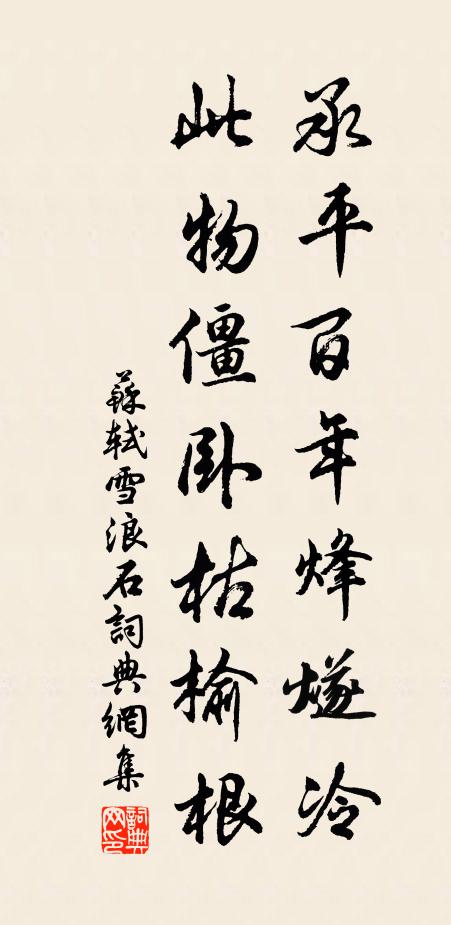 承平百年烽燧冷
此物僵卧枯榆根
蘇軾雪浪石詞典網集
詞典网印